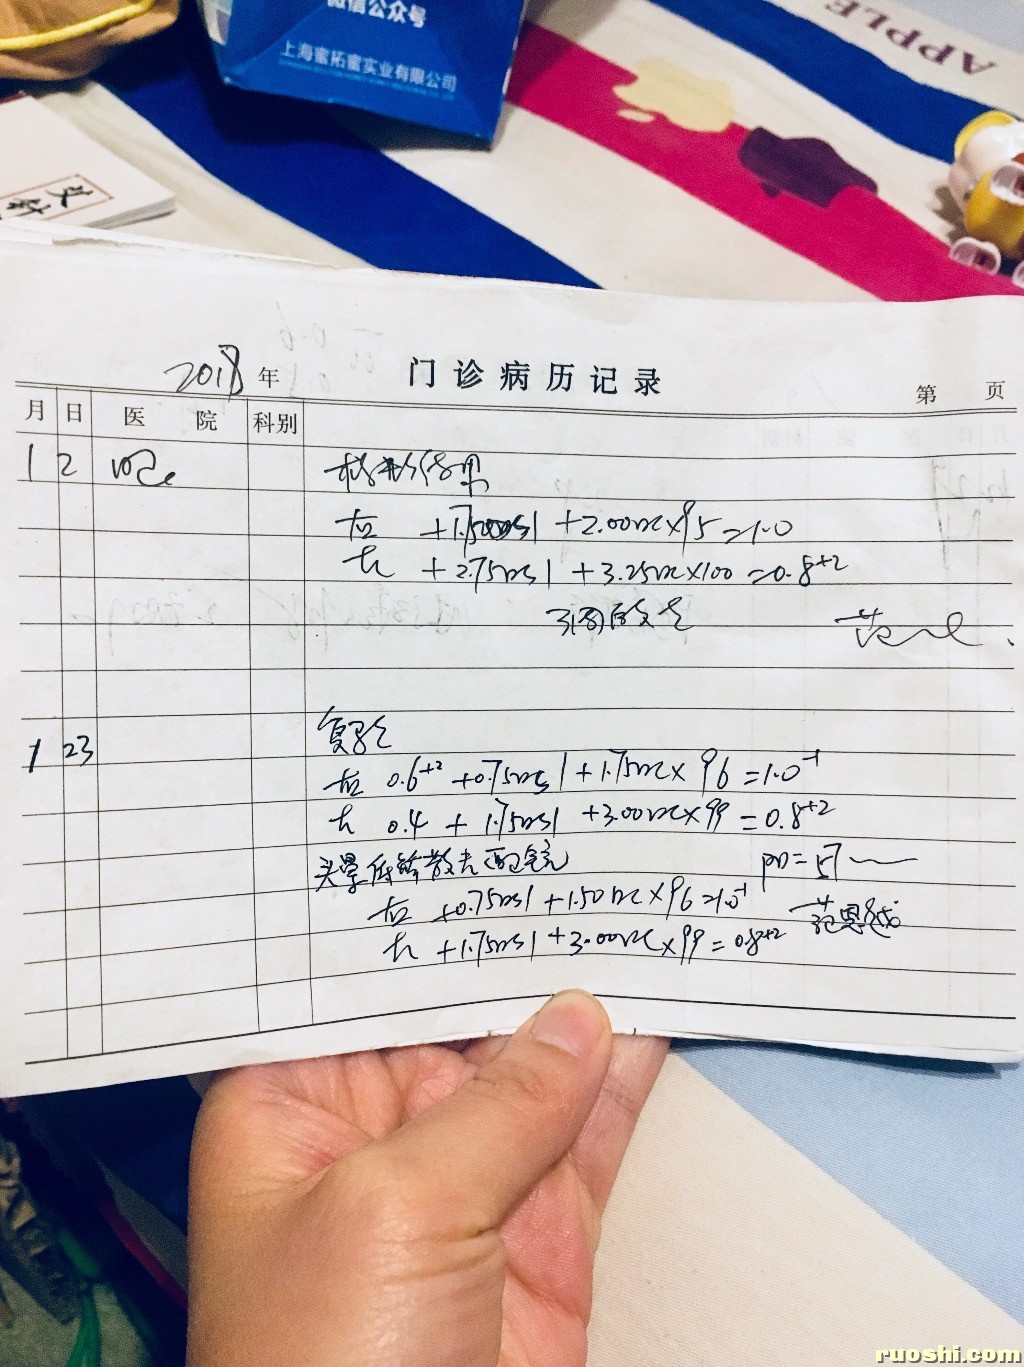 微信公众号
上海蜜拓蜜实业有限公司
APPLE
艾针
2018年 门诊病历记录 第 页
月 日 医院 科别
1 2 眼 检影结果
右 +1.50DS/+2.00DC×95=1.0
左 +2.75DS/+3.25DC×100=0.8+2
范
1 23 复验
右 0.6+2 +0.75DS/+1.75DC×96=1.0-1
左 0.4 +1.75DS/+3.00DC×99=0.8+2
头晕 降低散光配镜 PD=57
右 +0.75DS/+1.50DC×96=1.0-1 范恩越
左 +1.75DS/+3.00DC×99=0.8+2
ruoshi.com